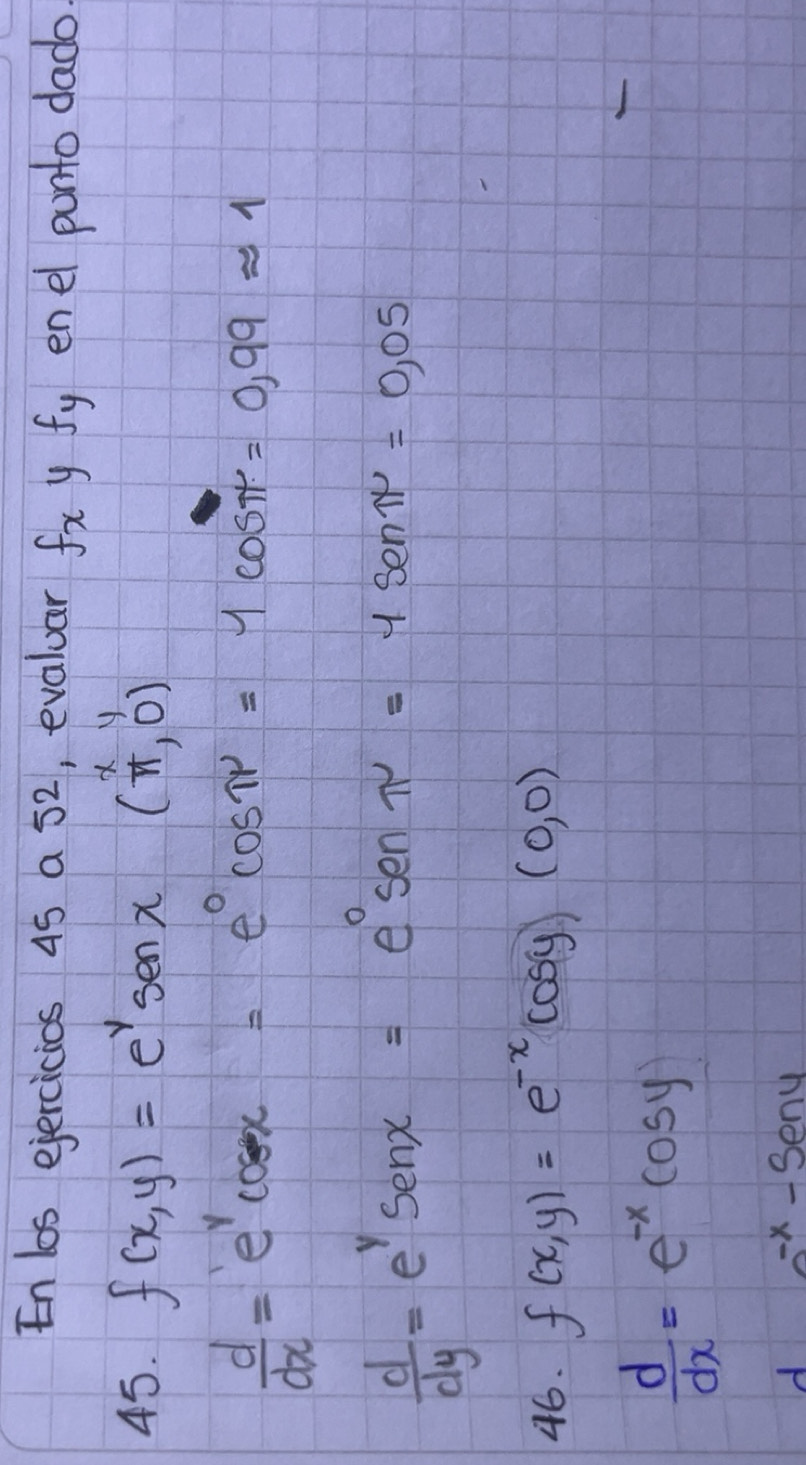 En los ejercicios 45 a 52, evaluar fx y fy en el punto dado.
45. f(x,y) = e^y sen x (π,0)
x y
d/dx = e^y cosx = e^0 cos π = 1 cos π = 0,99 ≈ 1
d/dy = e^y senx = e^0 sen π = 1 sen π = 0,05
46. f(x,y) = e^-x cos(y) (0,0)
d/dx = e^-x cosy
d e^-x - seny